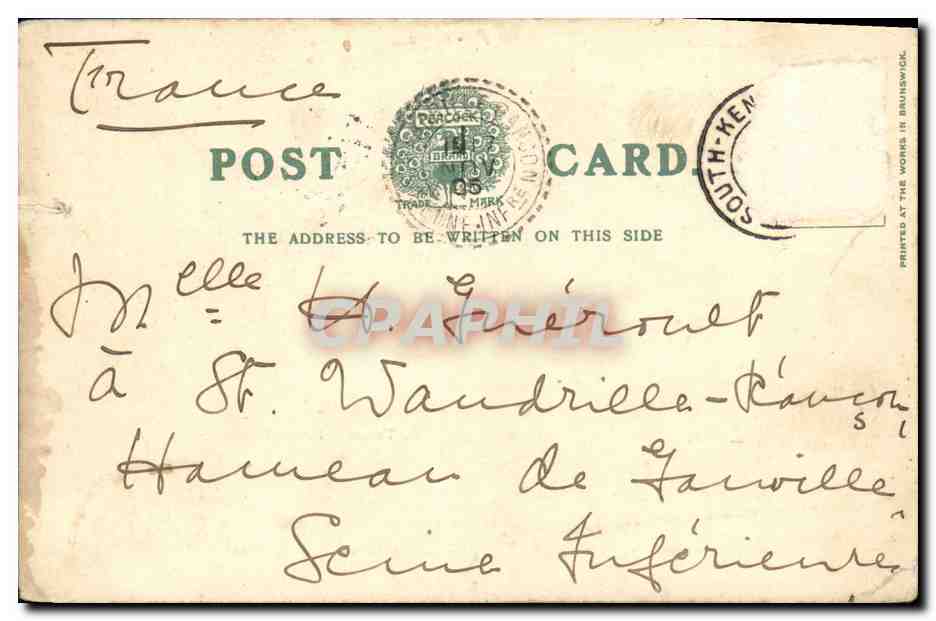 France
PEACOCK
BRAND
TRADE MARK
POST CARD.
19
05
SOUTH-KEN
THE ADDRESS TO BE WRITTEN ON THIS SIDE
PRINTED AT THE WORKS IN BRUNSWICK.
Melle H. Guéroult
CPAPHIL
à St. Wandrille-Rançon
s
Hameau de Gauville
Seine Inférieure